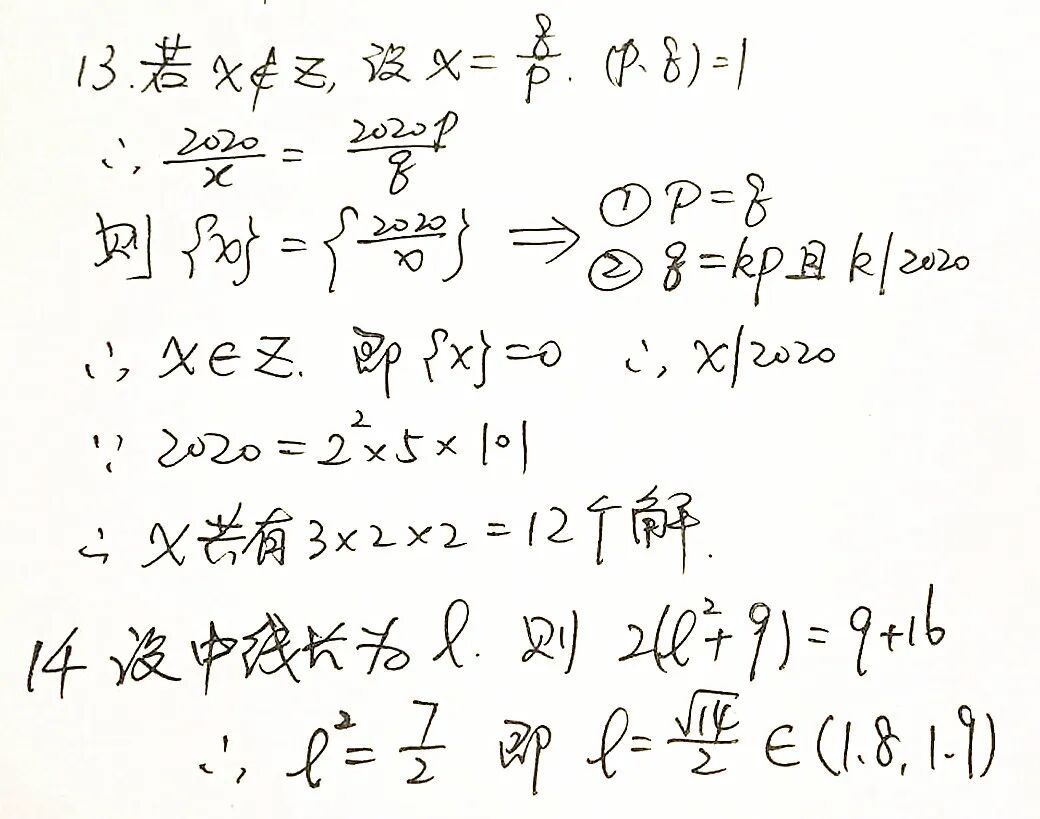 13. 若 x∉Z, 设 x = q/p. (p、q)=1
∴ 2020/x = 2020p/q
则 {x} = {2020/x} ⟹ ① p=q
② q=kp且 k|2020
∴ x∈Z. 即{x}=0 ∴ x|2020
∵ 2020 = 2²×5×101
∴ x共有3×2×2=12个解.
14 设中线长为 l. 则 2(l²+9)=9+16
∴ l²=7/2 即 l=√14/2 ∈(1.8, 1.9)